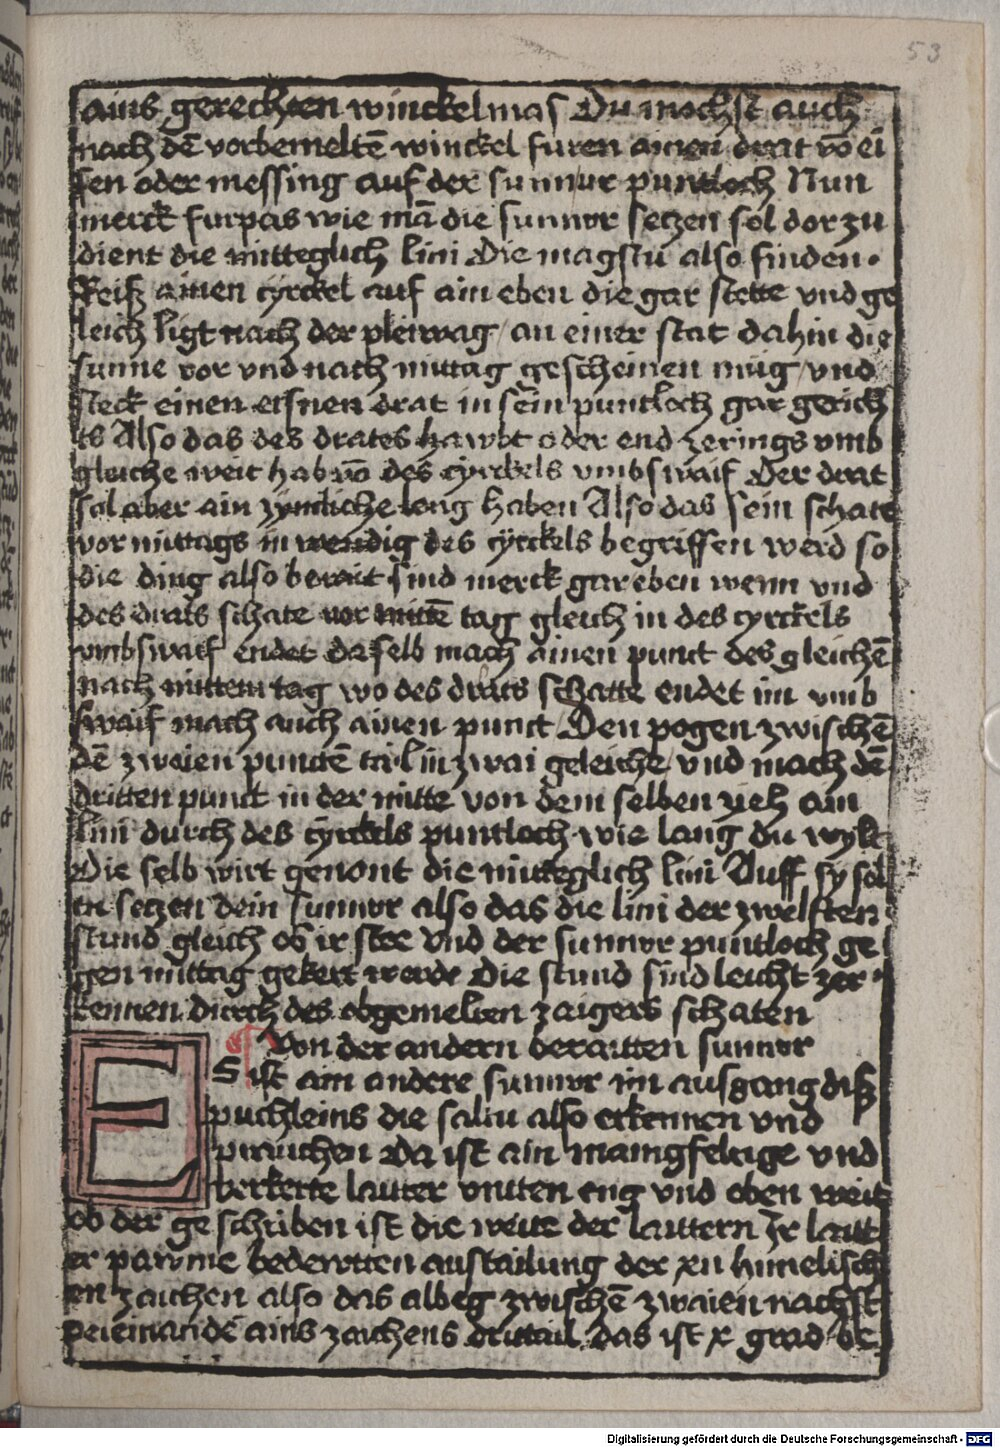 53
ains gerechten winckelmas Du mochst auch
nach dē vorbemeltē winckel furen ainen drat vō ei
sen oder messing auf der sunnur puntloch Nun
merck furpas wie mā die sunnor setzen sol dor zu
dient die mitteglich lini Die magstu also finden.
Reiß ainen cyrckel auf ain eben die gar stette vnd ge
leich ligt nach der pleiwag / an einer stat dahin die
sunne vor vnd nach mittag gescheinen müg / vnd
steck einen eisnen drat in sein puntloch gar gerich
ts Also das des drates hawbt oder end zerings vmb
gleiche weit hab vō des cyrckels vmbswaif Der drat
sol aber ain zymliche leng haben Also das sein schate
vor mittags in wendig des cyrckels begriffen werd so
die ding also berait sind merck gar eben wenn vnd
des drats schate vor mittē tag gleich in des cyrckels
vmbswaif endet daselb mach ainen punct des gleichē
nach mittem tag wo des drats schatte endet im vmb
swaif mach auch ainen punct Den pogen zwischē
dē zwaien punctē tail in zwai geleiche vnd mach dē
dritten punct in der mitte von dem selben zieh ain
lini durch des cyrckels puntloch wie lang du wylt
Die selb wirt genont die mitteglich lini Auff sy sol
tu setzen dein sunnor also das die lini der zwelften
stund gleich ob ir stee vnd der sunnor puntloch ge
gen mittag gekert werde Die stund sind leicht zer
kennen durch des obgemelten zaigers schaten
Von der andern beraitten sunnor
ES ist ain andere sunnor im ausgang diß
puchleins die saltu also erkennen vnd
prauchen Da ist ain mainigfeltige vnd
verkerte lauter vntten eng vnd oben weit
ob der geschriben ist die weite der lauttern Ir lautt
er pawme bedewtten austailung der xii himelisch
en zaichen also das albeg zwischē zwaien nachst
peieinandē ains zaichens drittail das ist x grad be
Digitalisierung gefördert durch die Deutsche Forschungsgemeinschaft - DFG